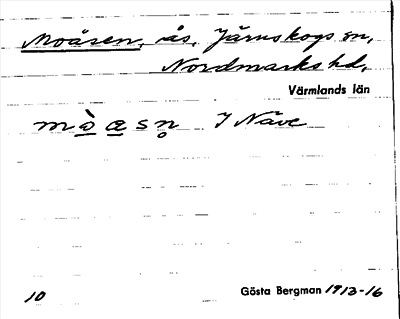 Moåsen, ås, Järnskogs sn,
Nordmarks hd,
Värmlands län
mò̱æ̱sn̥ I Näve
10
Gösta Bergman 1913-16